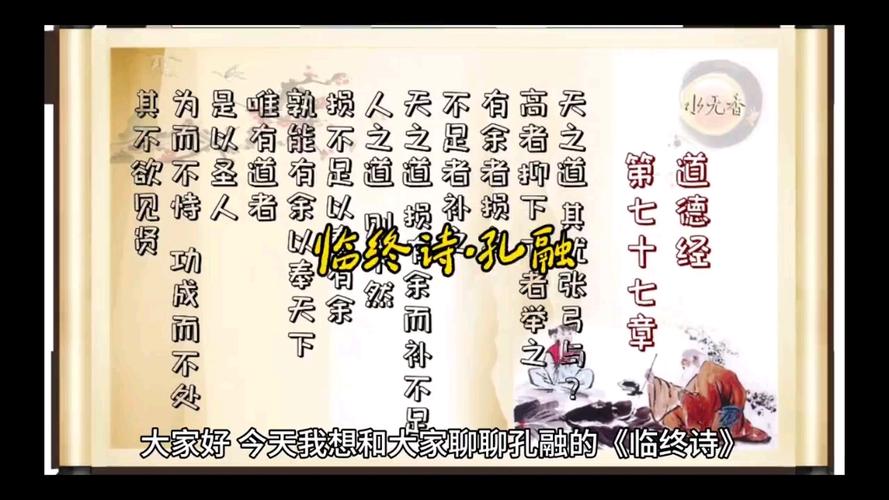 水无香
道德经
第七十七章
天之道 其犹张弓与?
高者抑下 者举之
有余者损
不足者补
天之道 损有余而补不足
人之道 则 然
损不足以 有余
孰能有余以奉天下
唯有道者
是以圣人
为而不恃 功成而不处
其不欲见贤
临终诗·孔融
大家好 今天我想和大家聊聊孔融的《临终诗》